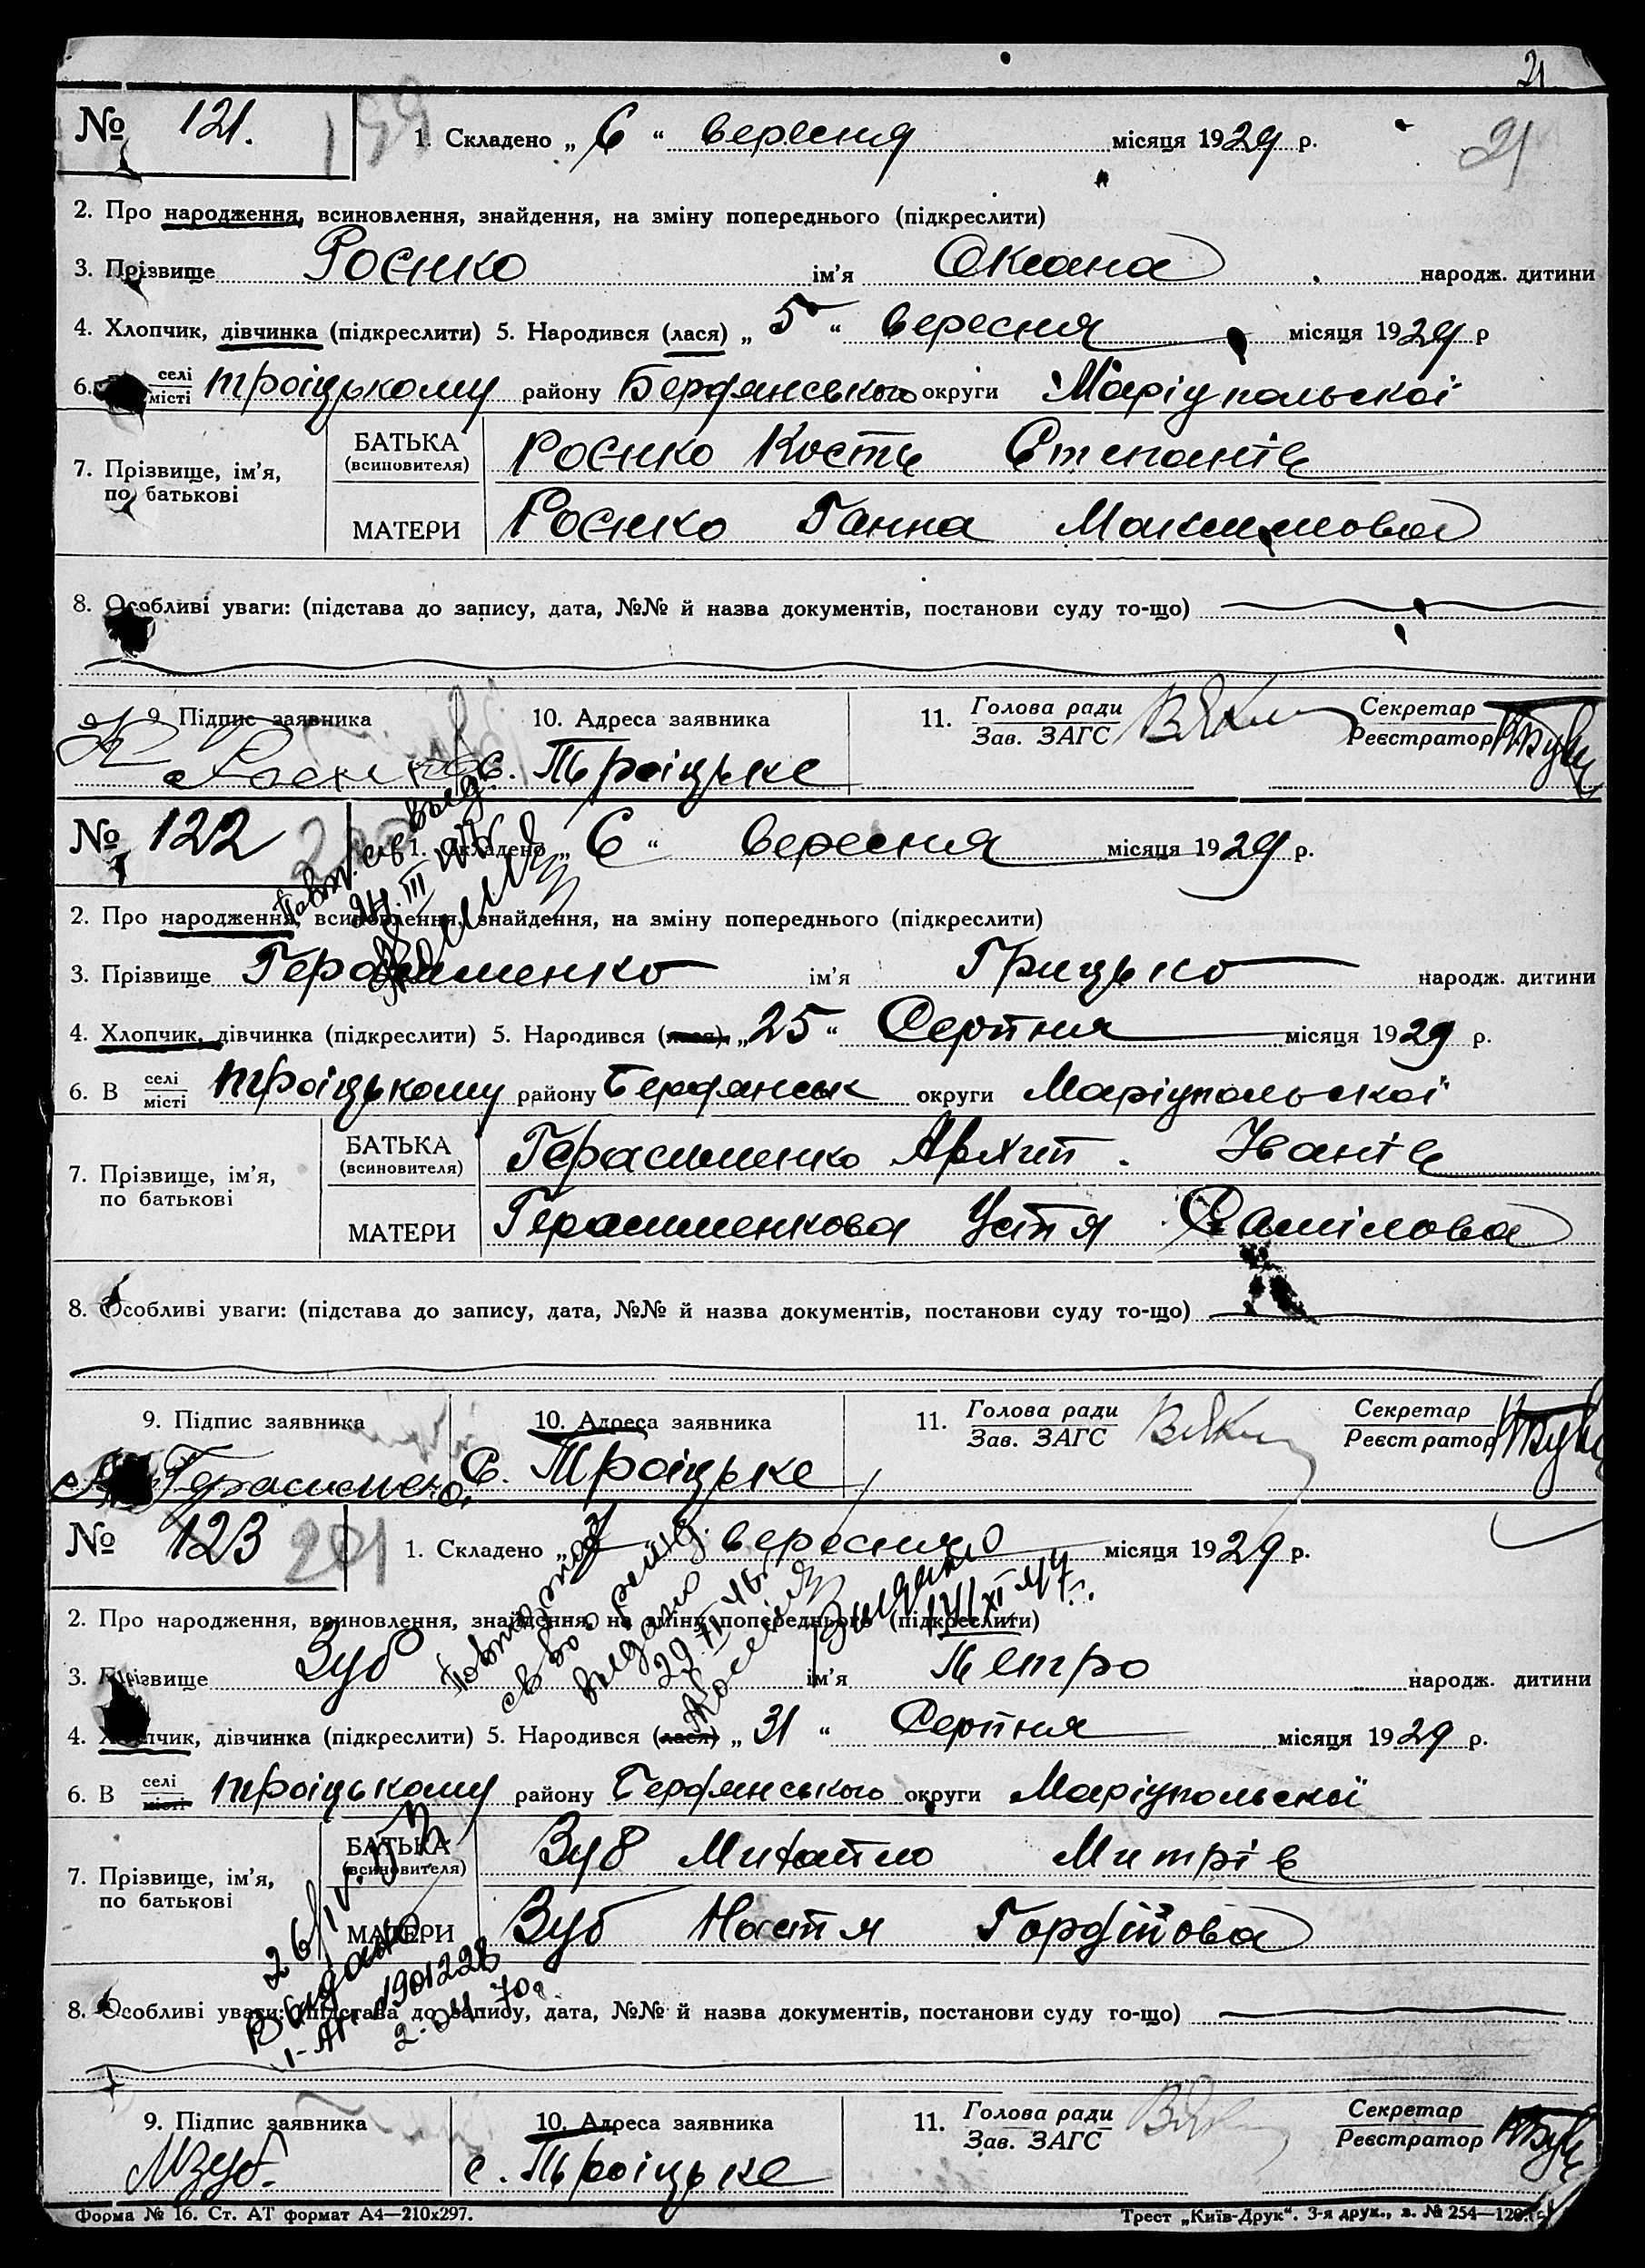 21
№ 121. 199 1. Складено „ 6 “ вересня місяця 1929 р. 21
2. Про народження, всиновлення, знайдення, на зміну попереднього (підкреслити)
3. Прізвище Роєнко ім’я Оксана народж. дитини
4. Хлопчик, дівчинка (підкреслити) 5. Народився (лася) „ 5 “ вересня місяця 1929 р
6. селі місті Троіцькому району Бердянського округи Маріупольскоі
7. Прізвище, ім’я, по батькові
БАТЬКА (всиновителя) Роєнко Кость Степанів
МАТЕРИ Роєнко Ганна Максимова
8. Особливі уваги: (підстава до запису, дата, №№ й назва документів, постанови суду то-що)
9. Підпис заявника 10. Адреса заявника 11. Голова ради Зав. ЗАГС Секретар Реєстратор
с. Троіцьке
№ 122 200 1. Складено „ 6 “ вересня місяця 1929 р.
Повт. св. выд.
24.III
2. Про народження, всиновлення, знайдення, на зміну попереднього (підкреслити)
3. Прізвище Герасименко ім’я Грицько народж. дитини
4. Хлопчик, дівчинка (підкреслити) 5. Народився (лася) „ 25 “ Серпня місяця 1929 р.
6. В селі місті Троіцькому району Бердянськ округи Маріупольскоі
7. Прізвище, ім’я, по батькові
БАТЬКА (всиновителя) Герасименко Архип. Іванів
МАТЕРИ Герасименкова Устя Данілова
8. Особливі уваги: (підстава до запису, дата, №№ й назва документів, постанови суду то-що)
9. Підпис заявника 10. Адреса заявника 11. Голова ради Зав. ЗАГС Секретар Реєстратор
Герасименко. С. Троіцьке
№ 123 201 1. Складено „ 7 вересня місяця 1929 р.
2. Про народження, всиновлення, знайдення, на зміну попереднього (підкреслити)
Повторное
св во о рожд.
выдано
Выдано
3. Прізвище Зуб ім’я Петро народж. дитини
4. Хлопчик, дівчинка (підкреслити) 5. Народився (лася) „ 31 “ Серпня місяця 1929 р.
6. В селі місті Троіцькому району Бердянського округи Маріупольскоі
7. Прізвище, ім’я, по батькові
БАТЬКА (всиновителя) Зуб Михайло Митрів
МАТЕРИ Зуб Настя Гордійова
Выдано
2.04.70г.
8. Особливі уваги: (підстава до запису, дата, №№ й назва документів, постанови суду то-що)
9. Підпис заявника 10. Адреса заявника 11. Голова ради Зав. ЗАГС Секретар Реєстратор
МЗуб. с. Троіцьке
Форма № 16. Ст. АТ формат А4—210х297. Трест „Київ-Друк“. 3-я друк., з. № 254—120.